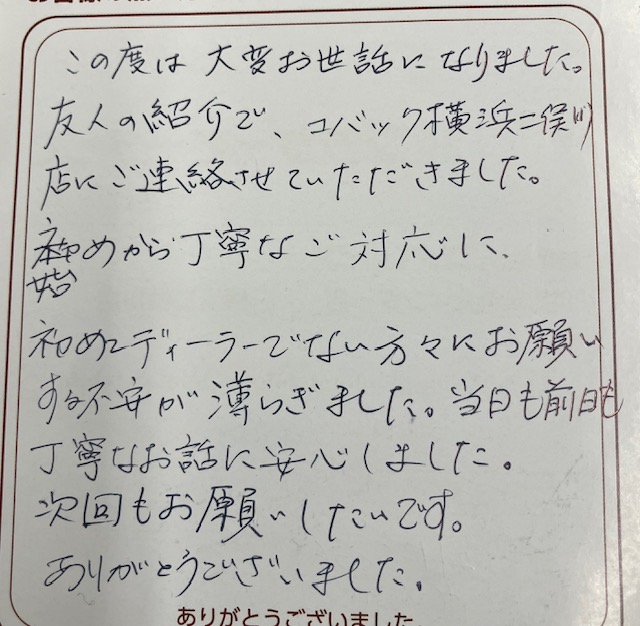 この度は大変お世話になりました。
友人の紹介で、コバック横浜二俣川
店にご連絡させていただきました。
始めから丁寧なご対応に、
初めてディーラーでない方々にお願い
する不安が薄らぎました。当日も前日も
丁寧なお話に安心しました。
次回もお願いしたいです。
ありがとうございました。
ありがとうございました。